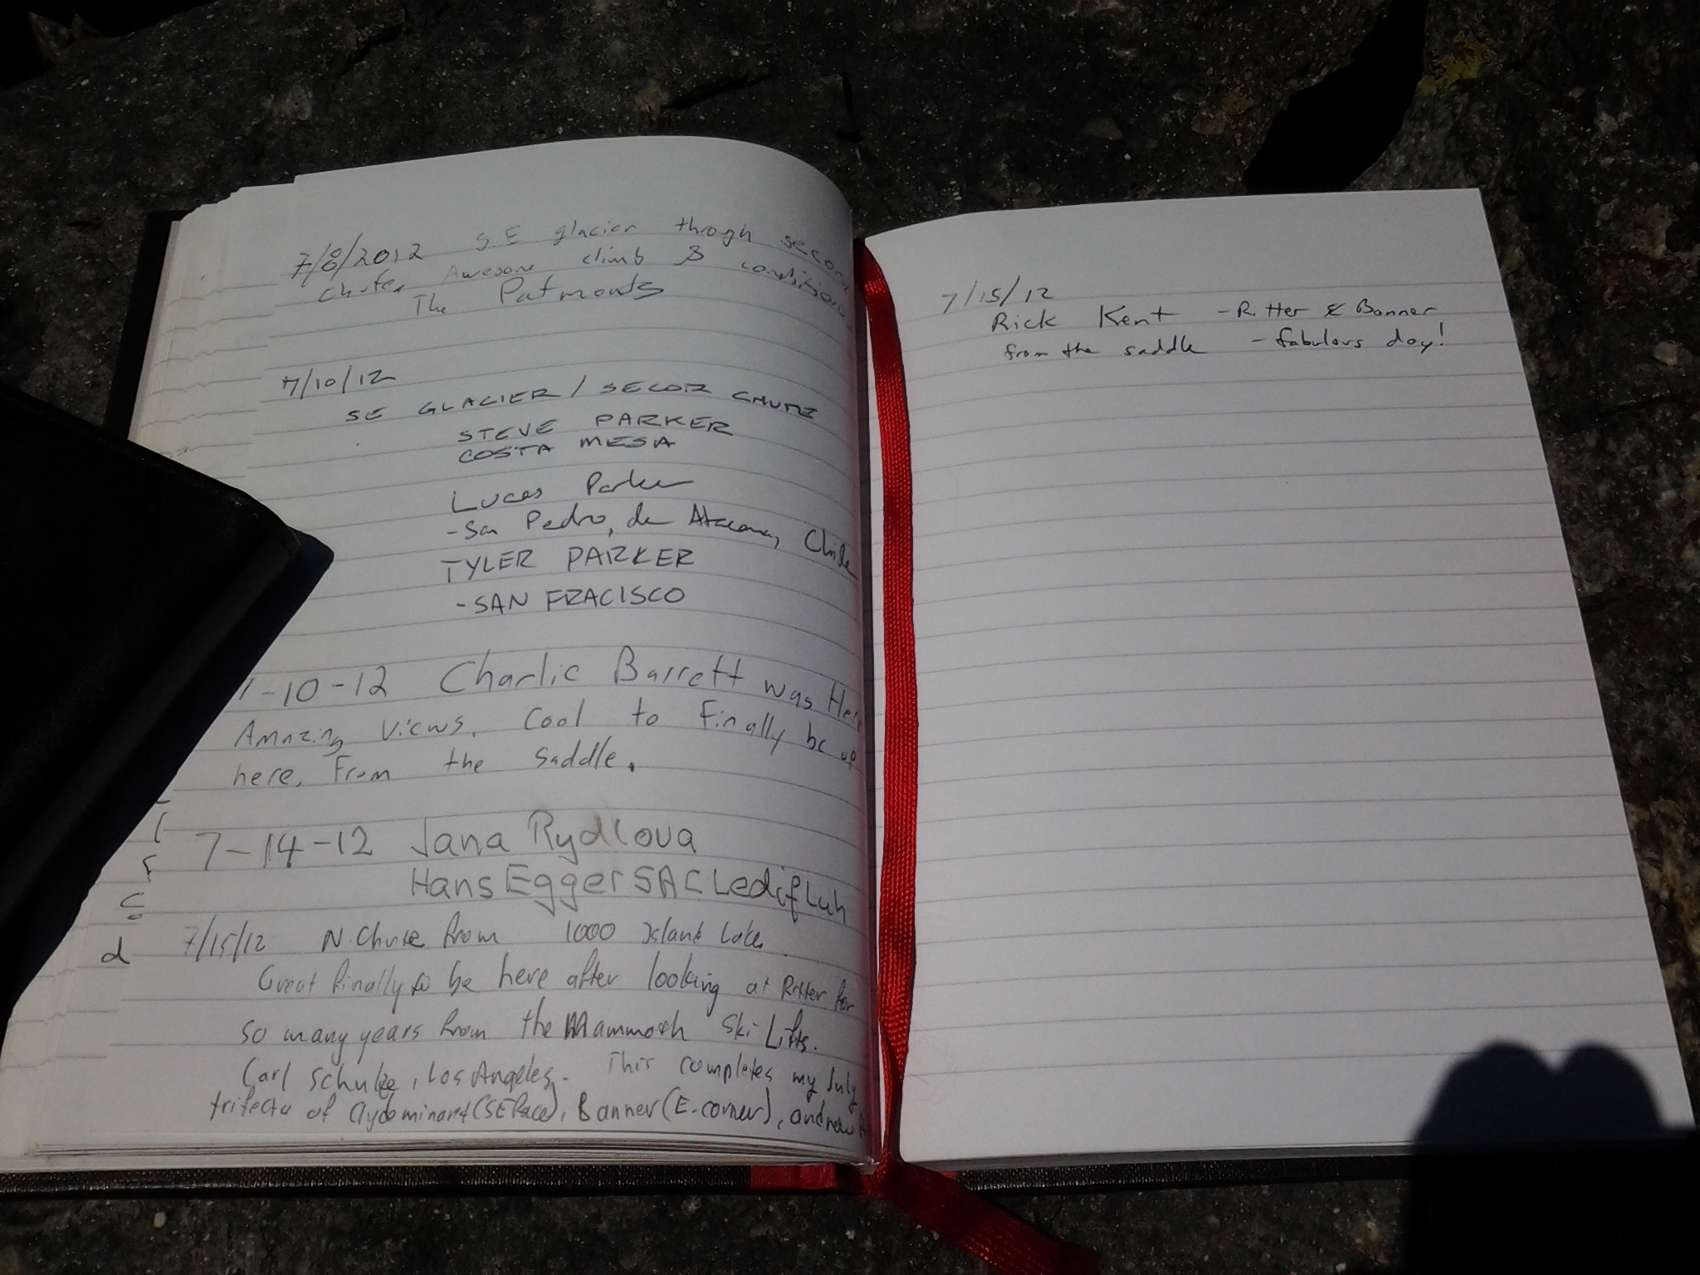 7/8/2012 S.E glacier throgh secor
chute. Awesome climb & conditions
The Patmonts
7/10/12
SE GLACIER / SECOR CHUTE
STEVE PARKER
COSTA MESA
Lucas Parker
- San Pedro, de Atacama, Chile
TYLER PARKER
- SAN FRACISCO
-10-12 Charlie Barrett was Here
Amazing views. Cool to finally be up
here. From the saddle.
7-14-12 Jana Rydlova
Hans Egger SAC
7/15/12 N. Chute from 1000 Island Lake
Great finally to be here after looking at Ritter for
so many years from the Mammoth Ski Lifts.
Carl Schulze, Los Angeles. This completes my July
trifecta of Clydminaret (SE Face), Banner (E-corner), and now
d
7/15/12
Rick Kent - Ritter & Banner
from the saddle - fabulous day!